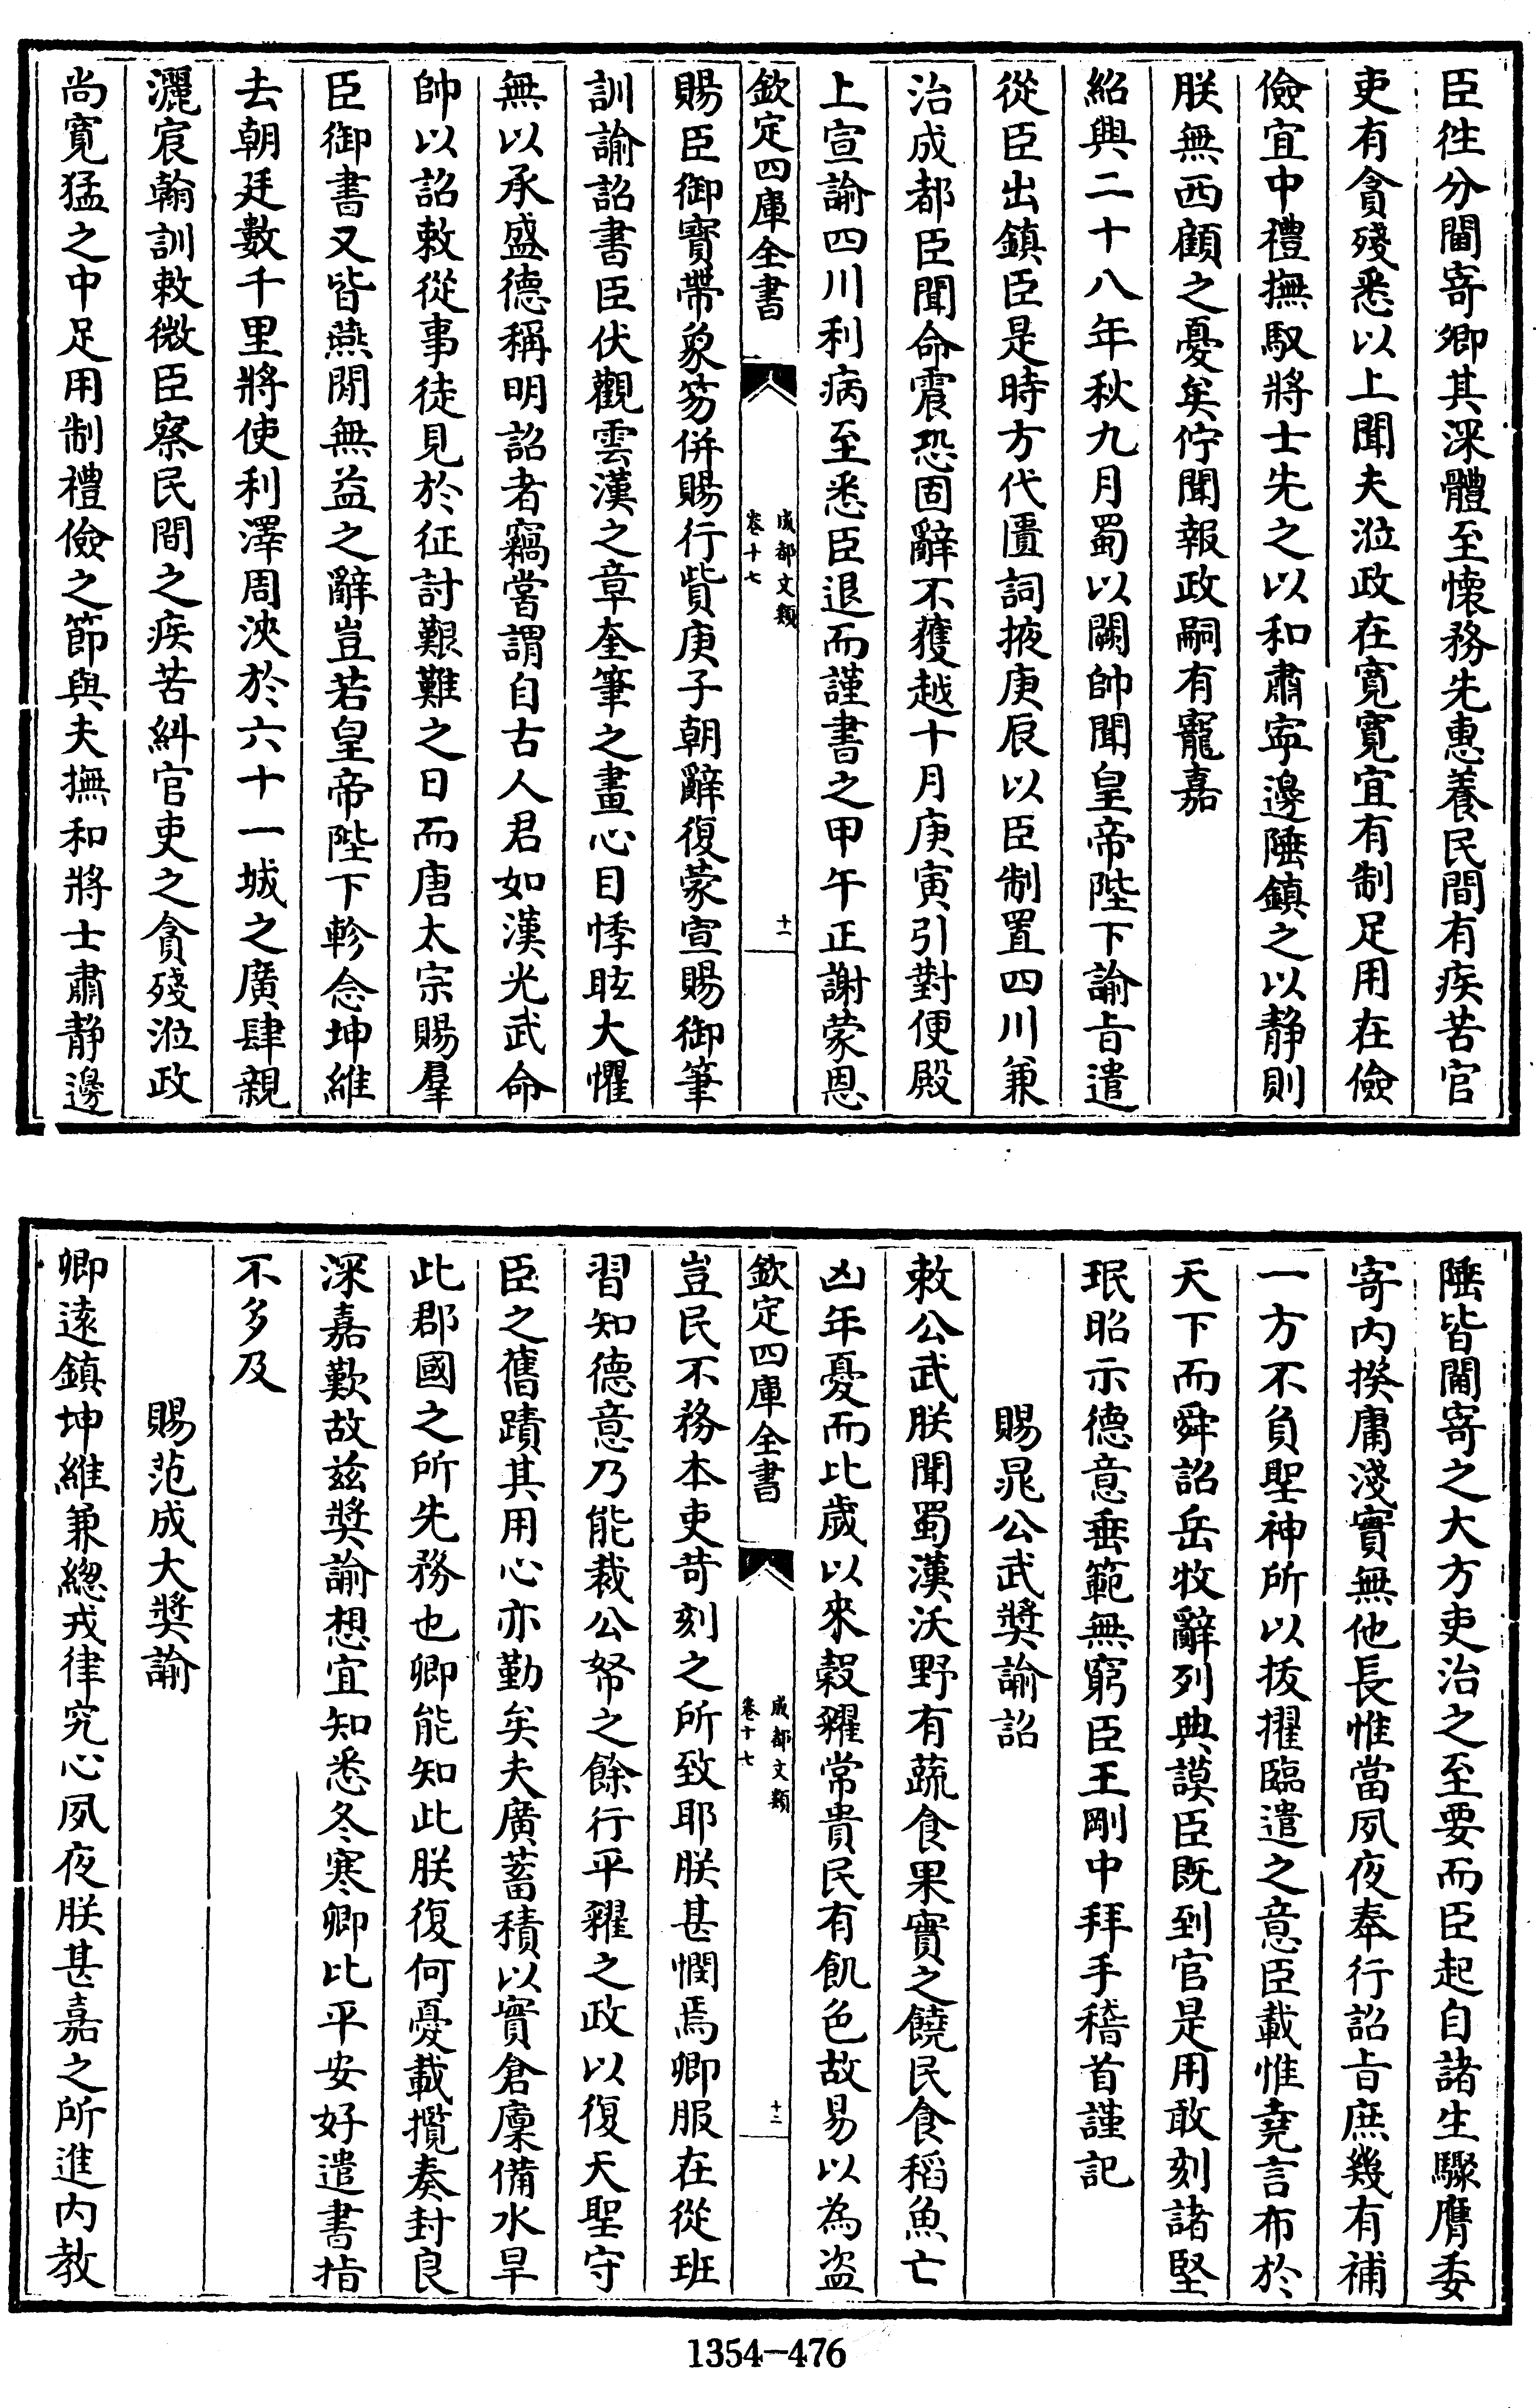 臣徃分閫寄卿其深體至懐務先惠養民間有疾苦官
吏有貪殘悉以上聞夫涖政在寛寛宜有制足用在儉
儉宜中禮撫馭將士先之以和肅寧邊陲鎮之以静則
朕無西顧之憂矣佇聞報政嗣有寵嘉
紹興二十八年秋九月蜀以闕帥聞皇帝陛下諭㫖遣
從臣出鎮臣是時方代匱詞掖庚辰以臣制置四川兼
治成都臣聞命震恐固辭不獲越十月庚寅引對便殿
上宣諭四川利病至悉臣退而謹書之甲午正謝蒙恩
欽定四庫全書
成都文類
卷十七
十一
賜臣御寳帶象笏併賜行貲庚子朝辭復蒙宣賜御筆
訓諭詔書臣伏觀雲漢之章奎筆之畫心目悸眩大懼
無以承盛德稱明詔者竊嘗謂自古人君如漢光武命
帥以詔敕從事徒見於征討艱難之日而唐太宗賜羣
臣御書又皆燕閒無益之辭豈若皇帝陛下軫念坤維
去朝廷數千里將使利澤周浹於六十一城之廣肆親
灑宸翰訓敕微臣察民間之疾苦糾官吏之貪殘涖政
尚寛猛之中足用制禮儉之節與夫撫和將士肅静邊
陲皆閫寄之大方吏治之至要而臣起自諸生驟膺委
寄内揆庸淺實無他長惟當夙夜奉行詔㫖庶幾有補
一方不負聖神所以拔擢臨遣之意臣載惟堯言布於
天下而舜詔岳牧辭列典謨臣既到官是用敢刻諸堅
珉昭示德意垂範無窮臣王剛中拜手稽首謹記
賜晁公武奬諭詔
敕公武朕聞蜀漢沃野有蔬食果實之饒民食稻魚亡
凶年憂而比歲以來榖糴常貴民有飢色故易以為盗
欽定四庫全書
成都文類
卷十七
十二
豈民不務本吏苛刻之所致耶朕甚憫焉卿服在從班
習知德意乃能裁公帑之餘行平糴之政以復天聖守
臣之舊蹟其用心亦勤矣夫廣蓄積以實倉廩備水旱
此郡國之所先務也卿能知此朕復何憂載攬奏封良
深嘉歎故兹奬諭想宜知悉冬寒卿比平安好遣書指
不多及
賜范成大奬諭
卿逺鎮坤維兼總戎律究心夙夜朕甚嘉之所進内教
1354-476